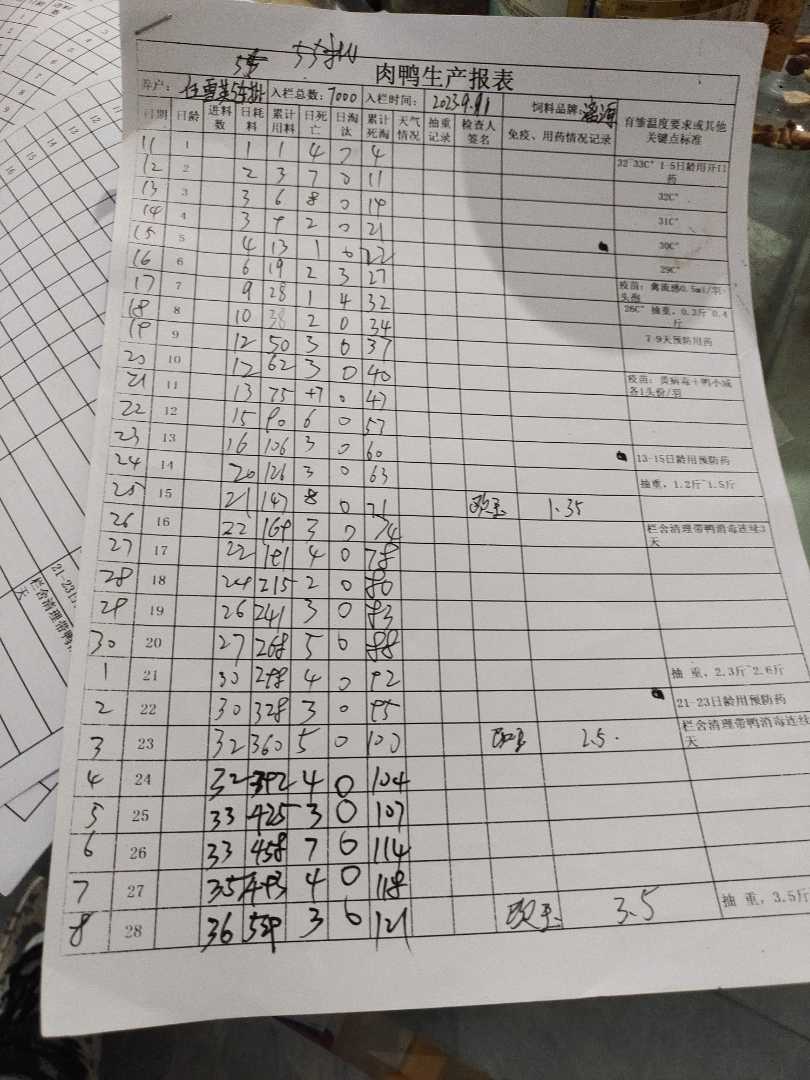 5号
肉鸭生产报表
养户： 入栏总数：7000 入栏时间： 2023.9.11 饲料品牌：
日期 日龄 进料数 日耗料 累计用料 日死亡 日淘汰 累计死淘 天气情况 抽重记录 检查人签名 免疫、用药情况记录 育雏温度要求或其他关键点标准
11 1 1 1 4 4 32-33C° 1-5日龄用开口药
12 2 2 3 7 0 11 32C°
13 3 3 6 8 0 19 31C°
14 4 3 9 2 0 21 30C°
15 5 4 13 1 0 22 29C°
16 6 6 19 2 3 27 疫苗：禽流感0.5ml/羽头孢
17 7 9 28 1 4 32 26C° 抽重，0.3斤~0.4斤
18 8 10 38 2 0 34 7-9天预防用药
19 9 12 50 3 0 37
20 10 12 62 3 0 40 疫苗：黄病毒+鸭小减各1头份/羽
21 11 13 75 +7 0 47
22 12 15 90 6 0 53
23 13 16 106 3 0 60 13-15日龄用预防药
24 14 20 126 3 0 63 抽重，1.2斤~1.5斤
25 15 21 147 8 0 71 1.35
26 16 22 169 3 0 74 栏舍清理带鸭消毒连续3天
27 17 22 191 4 0 78
28 18 24 215 2 0 80
29 19 26 241 3 0 83
30 20 27 268 5 0 88
1 21 30 298 4 0 92 抽 重，2.3斤~2.6斤
2 22 30 328 3 0 95 21-23日龄用预防药
3 23 32 360 5 0 100 2.5. 栏舍清理带鸭消毒连续天
4 24 32 392 4 0 104
5 25 33 425 3 0 107
6 26 33 458 7 0 114
7 27 35 493 4 0 118
8 28 36 529 3 0 121 3.5 抽 重，3.5斤